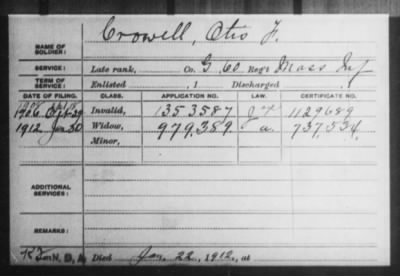 NAME OF SOLDIER: Crowell, Otis F.
SERVICE: Late rank, Co. G, 60 Reg't Mass Inf
TERM OF SERVICE: Enlisted , 1 Discharged , 1
DATE OF FILING. CLASS. APPLICATION NO. LAW. CERTIFICATE NO.
1906 29 Invalid, 1353587 1129689
1912, Jan 30 Widow, 979,389 a. 737,534,
Minor,
ADDITIONAL SERVICES:
REMARKS:
Died Jan. 22, 1912, at